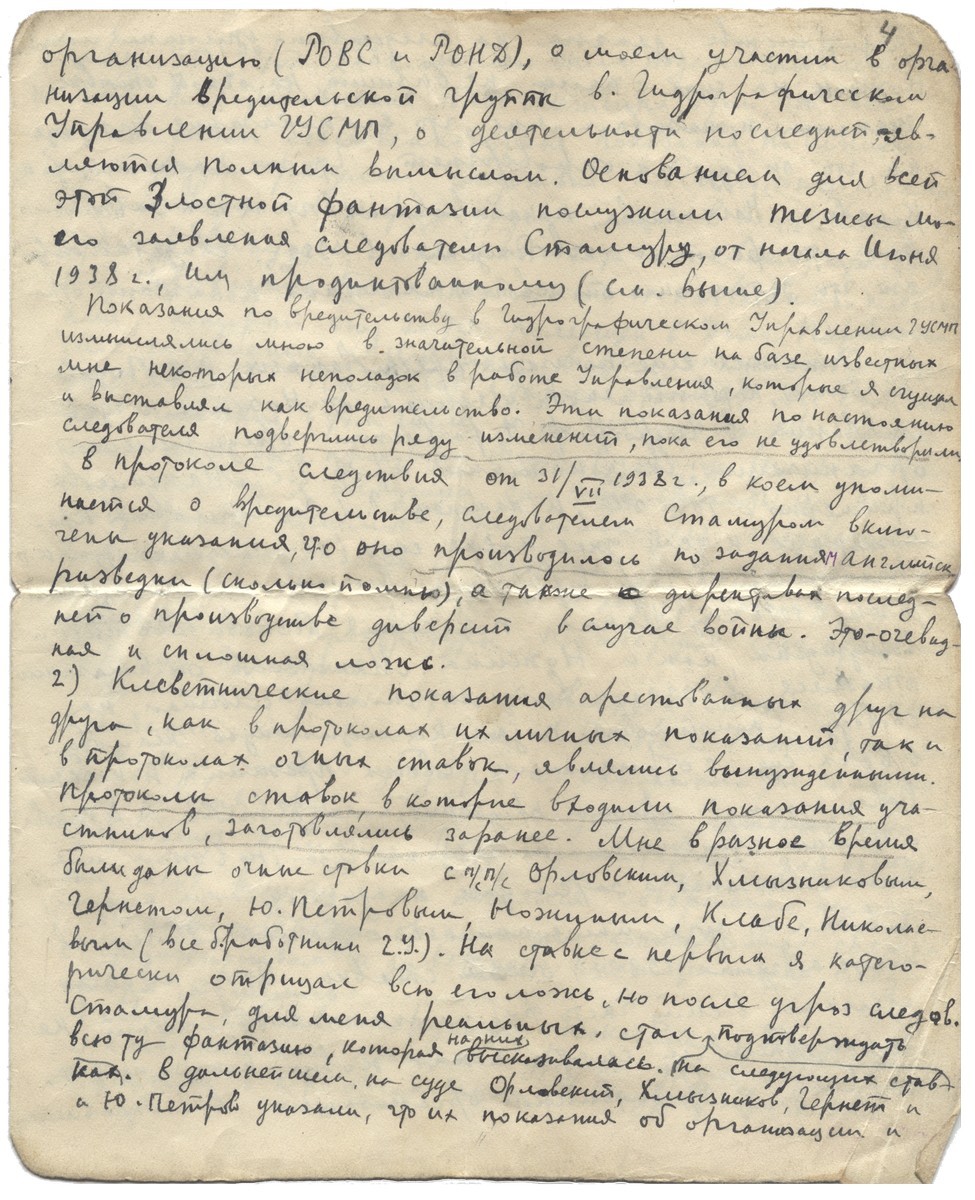 4
организацию (РОВС и РОНД), о моем участии в орга-
низации вредительской группы в. Гидрографическом
Управлении ГУСМП, о деятельности последней, яв-
ляются полным вымыслом. Основанием для всей
этой злостной фантазии послужили тезисы мо-
его заявления следователю Стамуру, от начала Июня
1938 г., им продиктованному (см. выше).
Показания по вредительству в Гидрографическом Управлении ГУСМП
измышлялись мною в. значительной степени на базе известных
мне некоторых неполадок в работе Управления, которые я сгущал
и выставлял как вредительство. Эти показания по настоянию
следователя подверглись ряду изменений, пока его не удовлетворили.
В протоколе следствия от 31/VII 1938 г., в коем упоми-
нается о вредительстве, следователем Стамуром вклю-
чены указания, что оно производилось по заданиям Английск
разведки (сколько помню), а также о директивах послед-
ней о производстве диверсий в случае войны. Это-очевид-
ная и сплошная ложь.
2) Клеветнические показания арестованных друг на
друга, как в протоколах их личных показаний, так и
в протоколах очных ставок, являлись вынужденными.
Протоколы ставок, в которые входили показания уча-
стников, заготовлялись заранее. Мне в разное время
были даны очные ставки с п/с п/с Орловским, Хмызниковым,
Гернетом, Ю. Петровым, Ножиным, Клабе, Николае-
вым (все б. работники Г.У.). На ставке с первым я катего-
рически отрицал всю его ложь, но после угроз следов.
Стамура, для меня реальных, стал подтверждать
всю ту фантазию, которая на них высказывалась. На следующих став-
ках. В дальнейшем, на суде Орловский, Хмызников, Гернет и
и Ю. Петров указали, что их показания об организации и